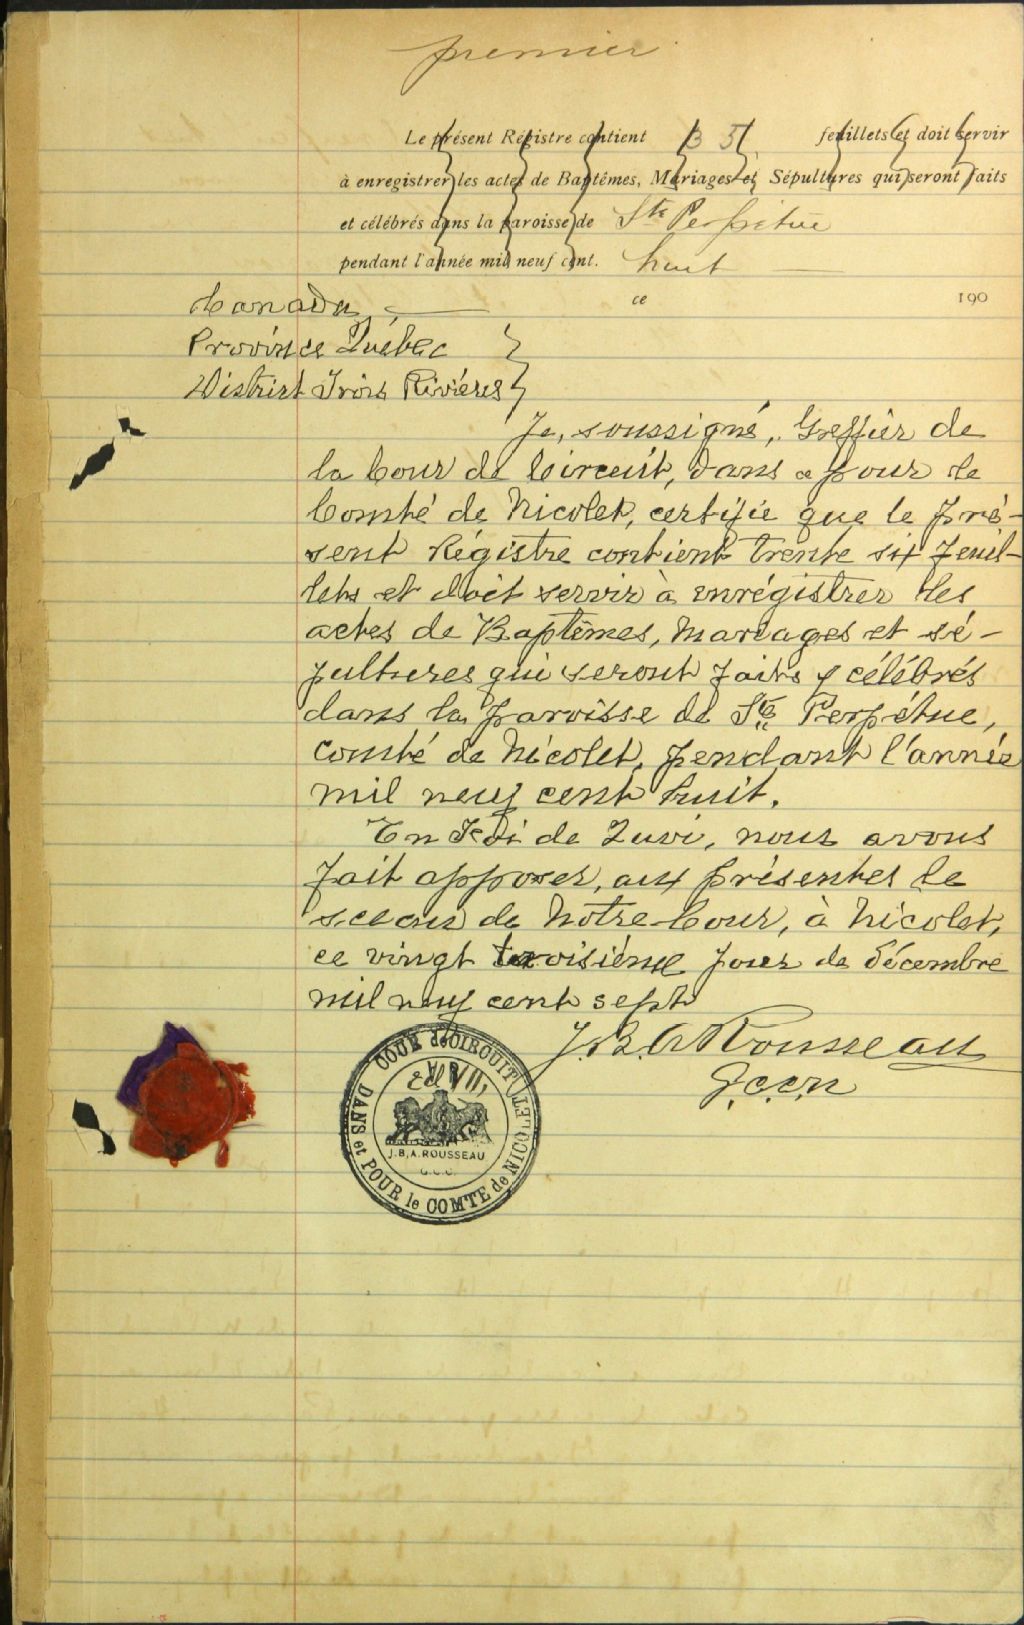 premier
Le présent Régistre contient 35 feuillets et doit servir
à enregistrer les actes de Baptêmes, Mariages et Sépultures qui seront faits
et célébrés dans la paroisse de Ste Perpétue
pendant l'année mil neuf cent. huit
ce 190
Canada,
Province Québec
District Trois Rivières
Je, soussigné, Greffier de
la Cour de Circuit, dans & pour le
Comté de Nicolet, certifie que le pré-
sent Régistre contient trente six feuil-
lets et doit servir à enrégistrer les
actes de Baptêmes, Mariages et sé-
pultures qui seront faits & célébrés
dans la paroisse de Ste Perpétue,
Comté de Nicolet, pendant l'année
mil neuf cent huit.
En Foi de Quoi, nous avons
fait apposer, aux présentes le
sceau de Notre Cour, à Nicolet,
ce vingt troisième jour de décembre
mil neuf cent sept
J.B.A Rousseau
G.C.C.N
COUR de CIRCUIT
DANS et POUR le COMTE de NICOLET
J.B.A. ROUSSEAU
G.C.C.